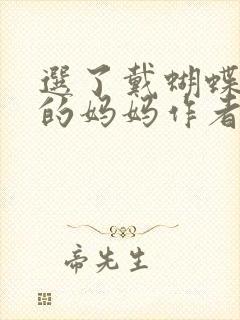 選了戴蝴蝶
的妈妈作者
帝先生